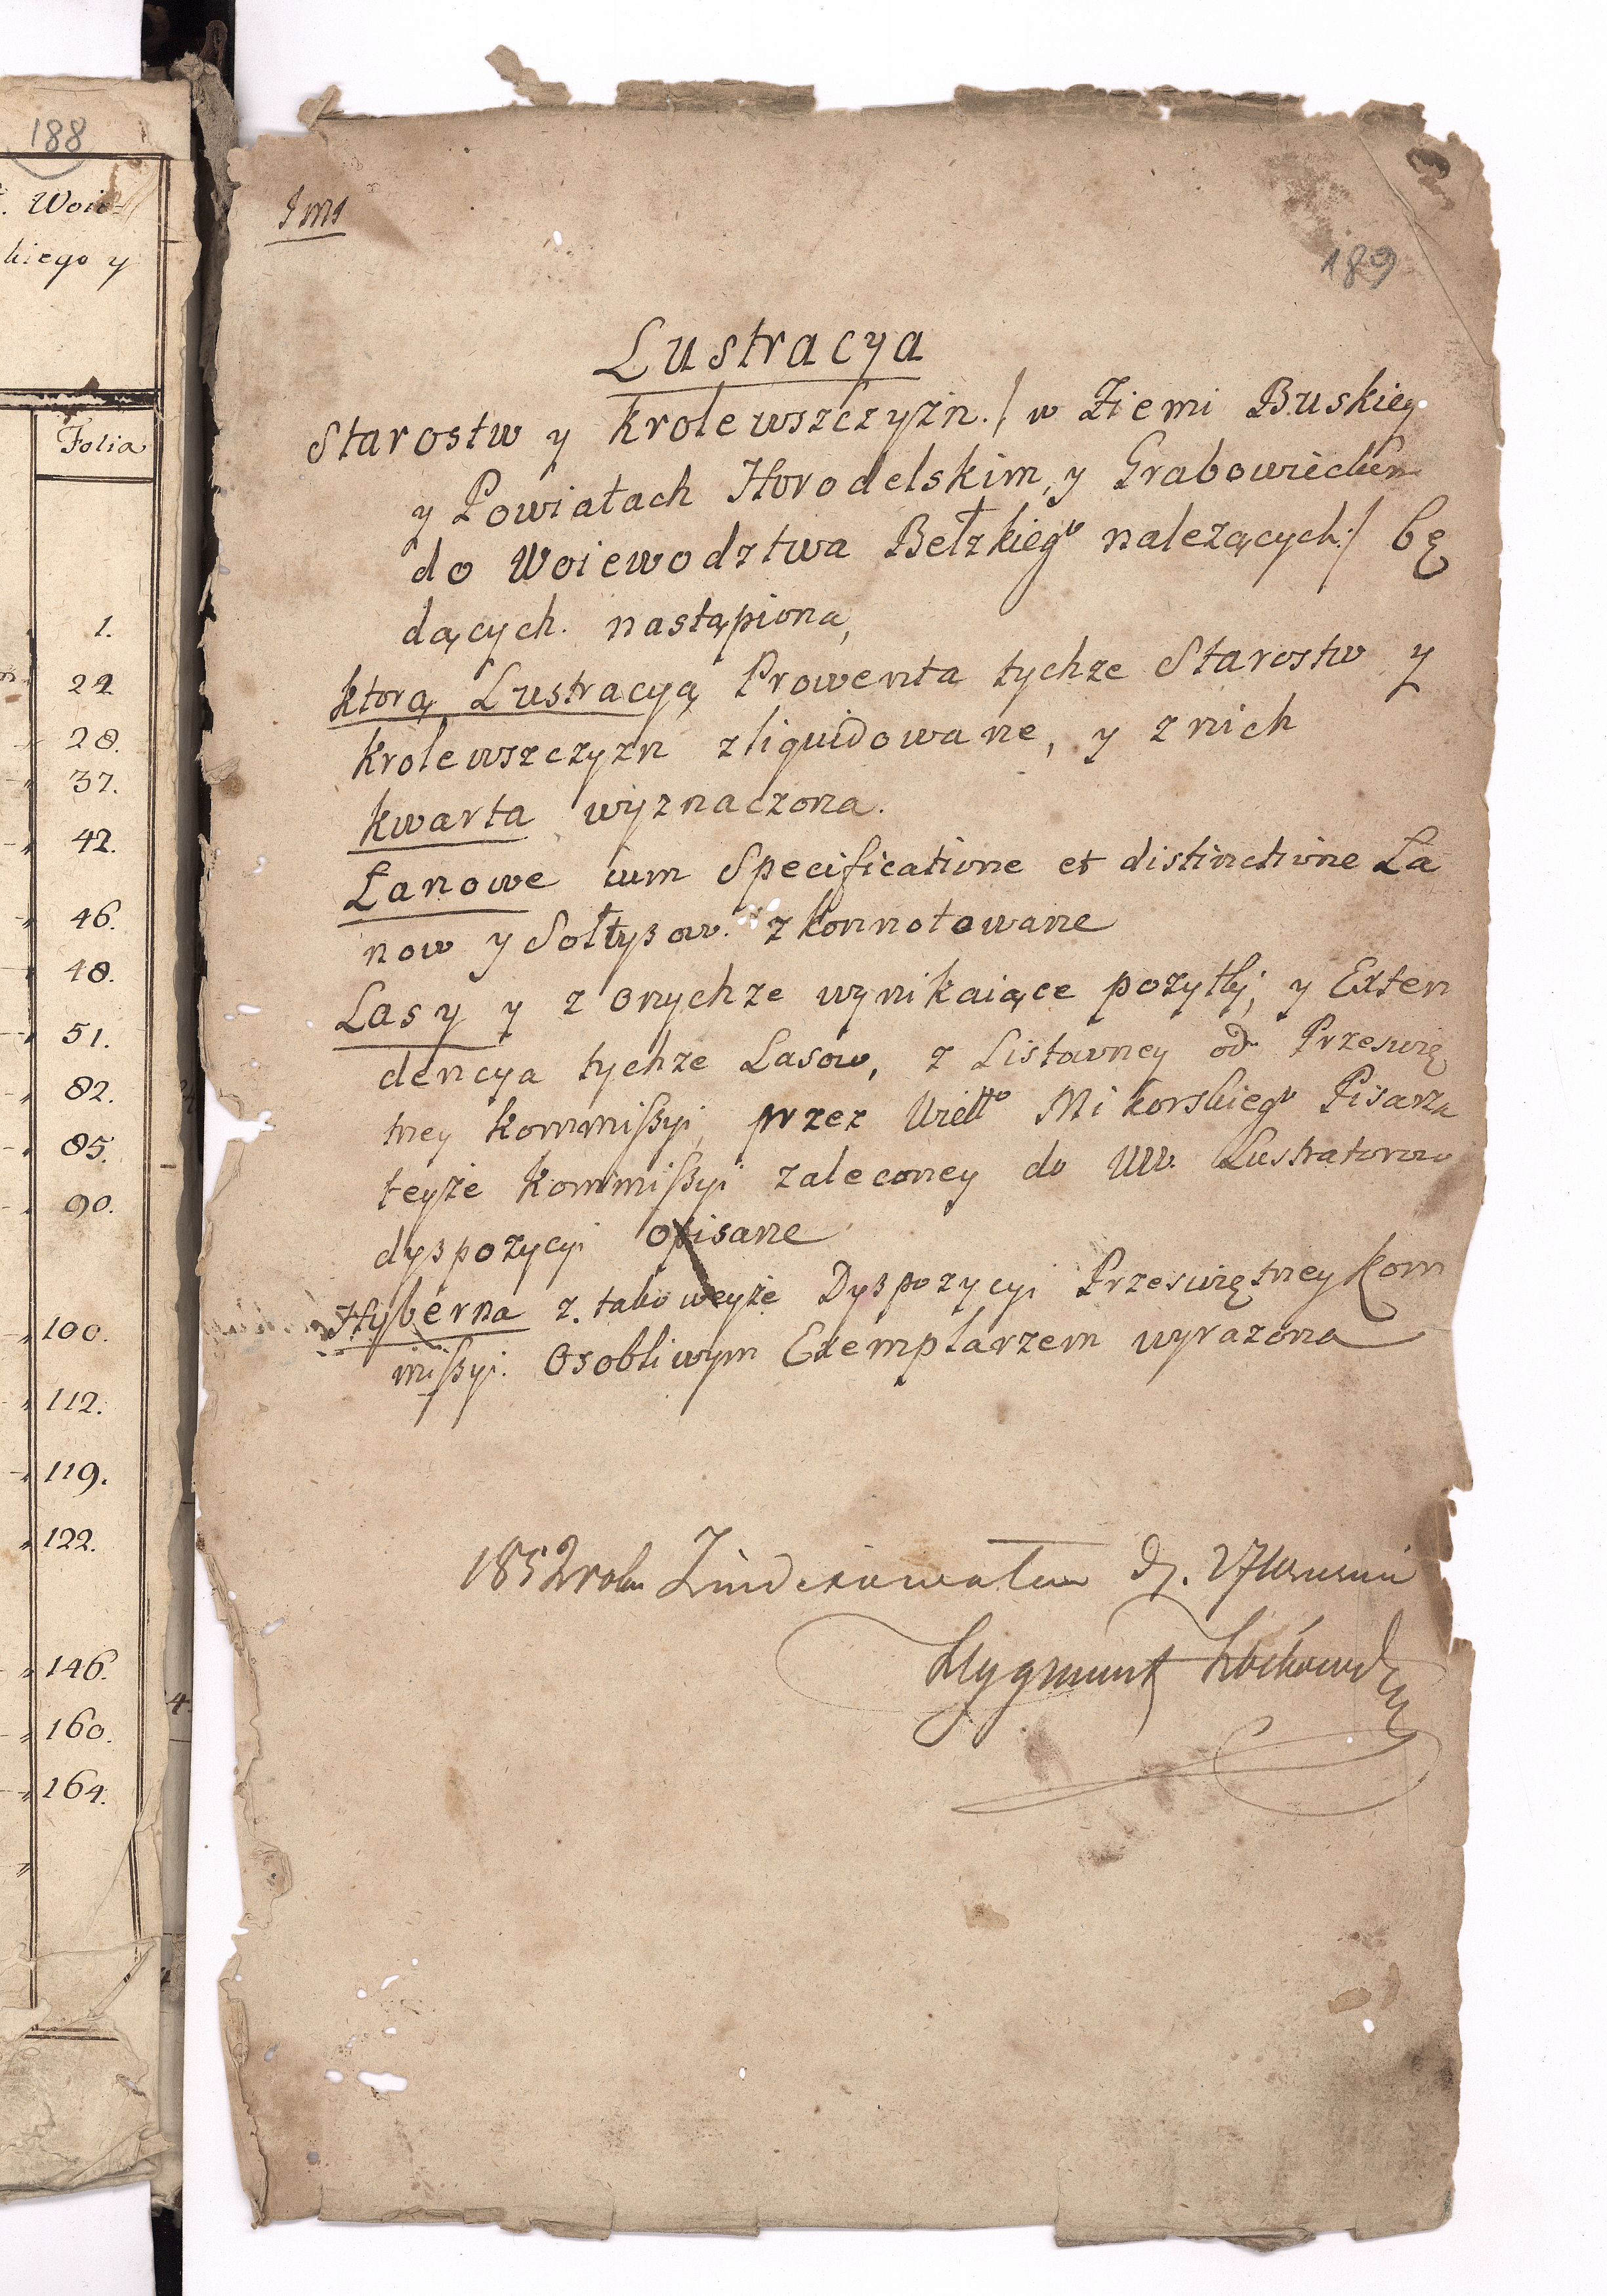 188
Woie-
kiego y
Folia
1.
22
28.
37.
42.
46.
48.
51.
82.
85.
90.
100.
112.
119.
122.
146.
160.
164.
189
Lustracya
Starostw y krolewszczyzn./ w Ziemi Buskiey
y Powiatach Horodelskim, y Grabowieckim
do Woiewodztwa Bełzkiego należących:/ bę
dących. nastąpiona,
ktorą Lustracyą Prowenta tychze Starostw y
krolewszczyzn zliquidowane, y z nich
kwarta wyznaczona.
Łanowe cum Specificatione et distinctione Ła
now y Sołtysow. zkonnotowane
Lasy y z onychze wynikaiące pozytki, y Exten
dencya tychze Lasow, z Listowney od Przeswię
tney kommißyi, przez Wielło Mikorskiego Pisarza
teyże kommißyi zaleconey do WW. Lustratorow
dyspozycyi opisane
Hyberna z. takoweyże Dyspozycyi Przeswiętney kom
mißyi. Osobliwym Exemplarzem wyrazona
1852 roku Zindexowałem D. 27 Wrzesnia
Zygmunt